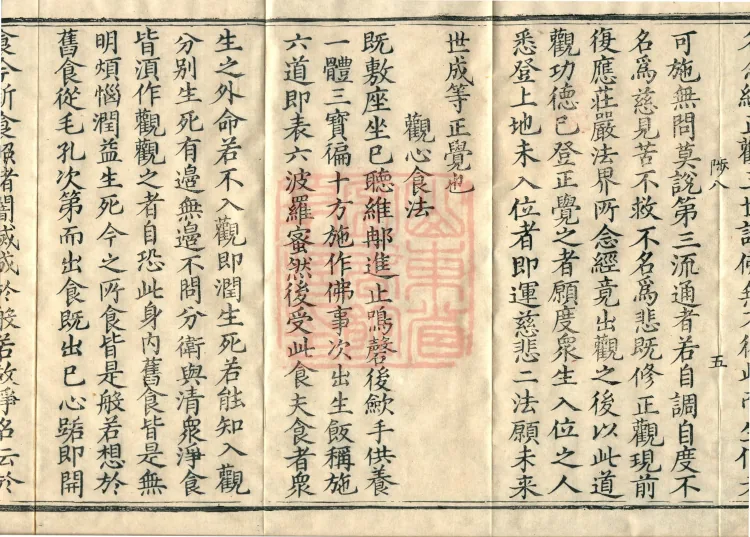 陟八
五
可施無問莫說第三流通者若自調自度不
名爲慈見苦不救不名爲悲既修正觀現前
復應莊嚴法界所念經竟出觀之後以此道
觀功德已登正覺之者願度衆生入位之人
悉登上地未入位者即運慈悲二法願未來
世成等正覺也
觀心食法
既敷座坐已聽維那進止鳴磬後歛手供養
一體三寶徧十方施作佛事次出生飯稱施
六道即表六波羅蜜然後受此食夫食者衆
生之外命若不入觀即潤生死若能知入觀
分別生死有邊無邊不問分衛與清衆淨食
皆須作觀觀之者自恐此身內舊食皆是無
明煩惱潤益生死今之所食皆是般若想於
舊食從毛孔次第而出食既出已心路即開
食今新食照諸闇滅成於般若故淨名云於